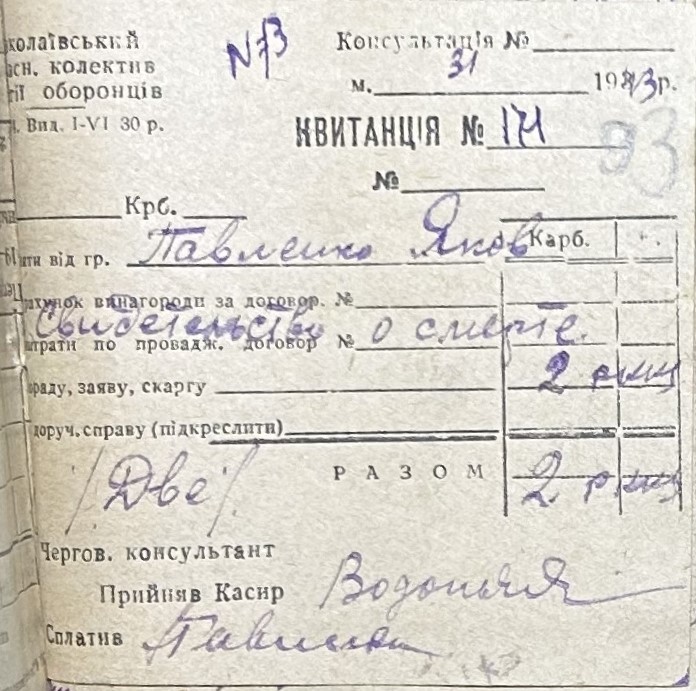 колаївський
асн. колектив
гії оборонців
Вид. I-VI 30 р.
N 73
Консультація №
м. 31 1943 р.
КВИТАНЦІЯ № 171
93
№
Крб.
яти від гр. Павленко Яков
Карб.
ахунок винагороди за договор. №
Свидетельство о смерте.
трати по провадж. договор №
ораду, заяву, скаргу 2 р.
доруч. справу (підкреслити)
/Две/. РАЗОМ 2 р.
Чергов. консультант
Прийняв Касир
Сплатив